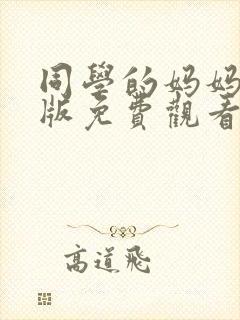 同學的妈妈
版免費觀看
高道飛